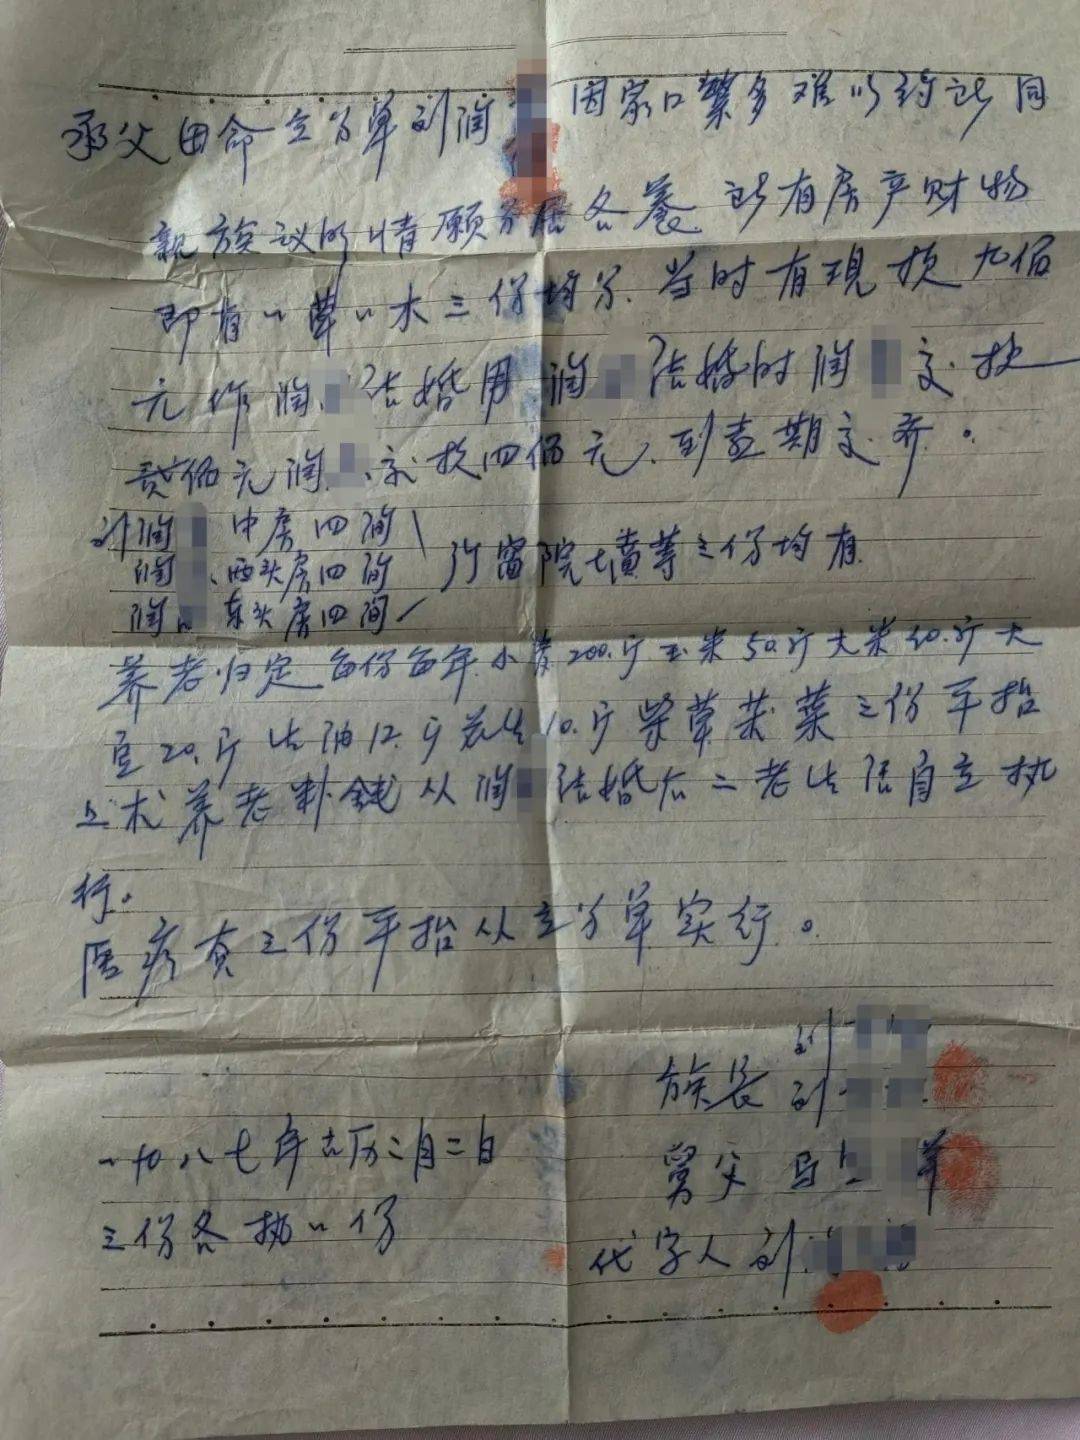 承父母命立分单刘润 因家口繁多难以约束同
亲族议明情愿分居各爨 所有房产财物
即有一草一木三份均分.当时有现款九佰
元作润 结婚用.润 结婚时润 交.款
贰佰元润 交.款四佰元.到壹期交齐。
计润 中房四间
润 西头房四间 弥留院土粪等三份均有
润 东头房四间
养老归定每份每年.小麦200.斤玉米50.斤大米40.斤大
豆20.斤生油12.斤花生10.斤柴草菜菜三份平抬
上术养老料钱从润 结婚后二老生活自立执
行。
医疗负三份平抬从立分单实行。
刘
族长 刘
一九八七年古历二月二日
舅父 马
三份各执一份
代字人 刘